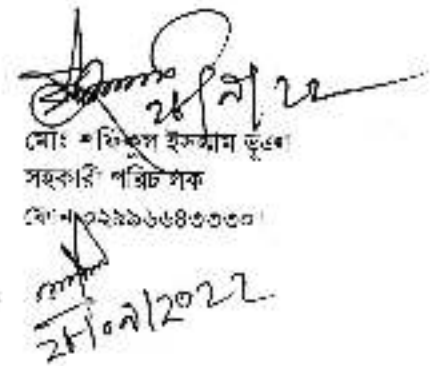 ২৮/৯/২২
মোঃ শফিকুল ইসলাম ভূঞা
সহকারী পরিচালক
ফোন:০২৯৯৬৬৪৩৩৩০।
২৮/০৯/২০২২